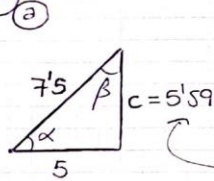 a
7'5
β
c = 5'59
α
5